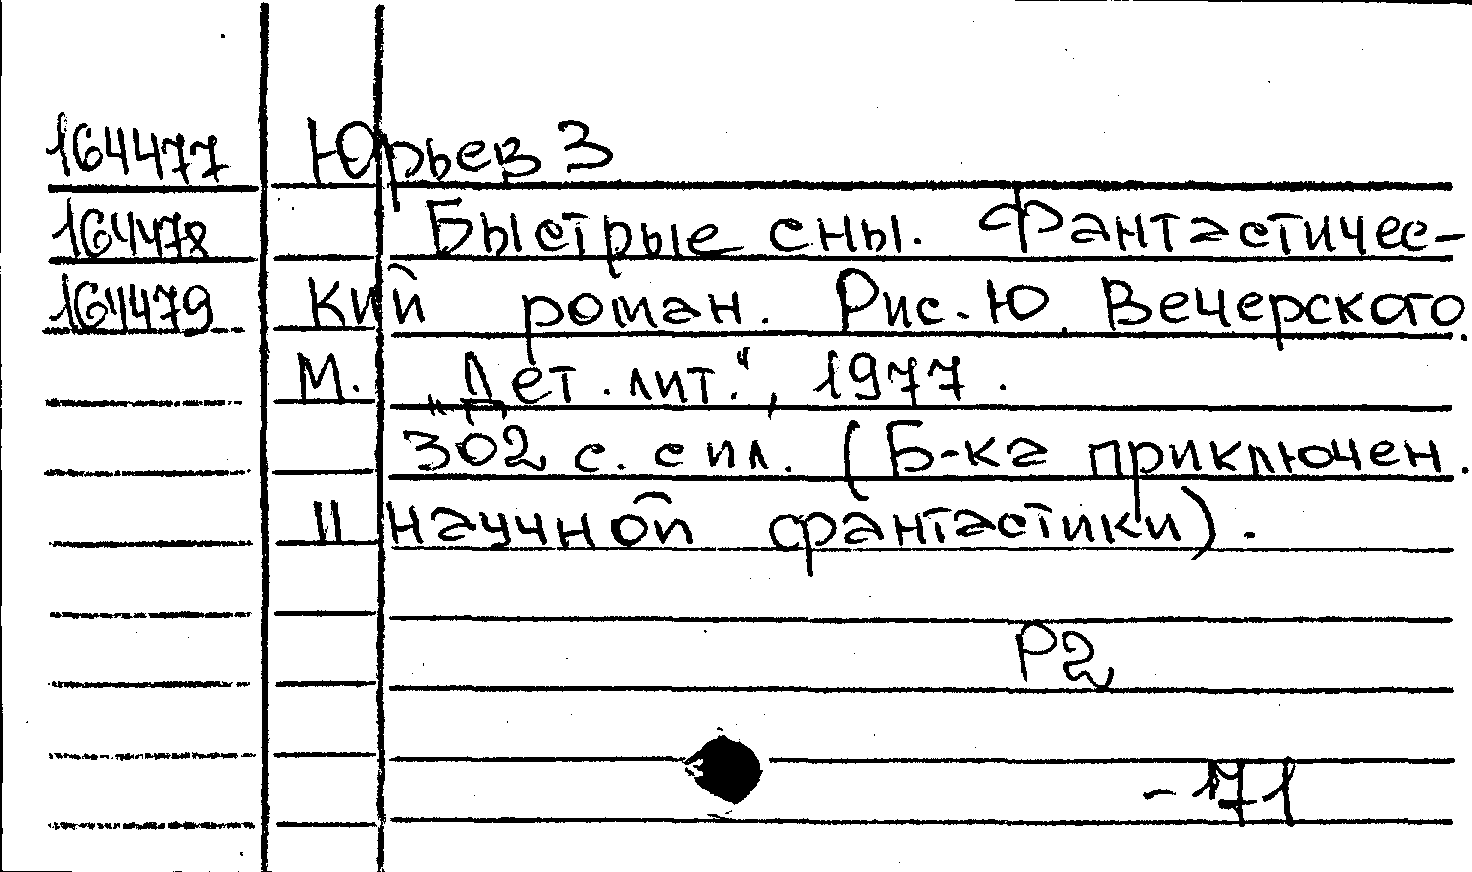 164477 Юрьев З
164478 Быстрые сны. Фантастичес-
164479 кий роман. Рис. Ю. Вечерского.
М. „Дет. лит.“, 1977.
302 с. с ил. (Б-ка приключен.
и научной фантастики).
Р2
-171